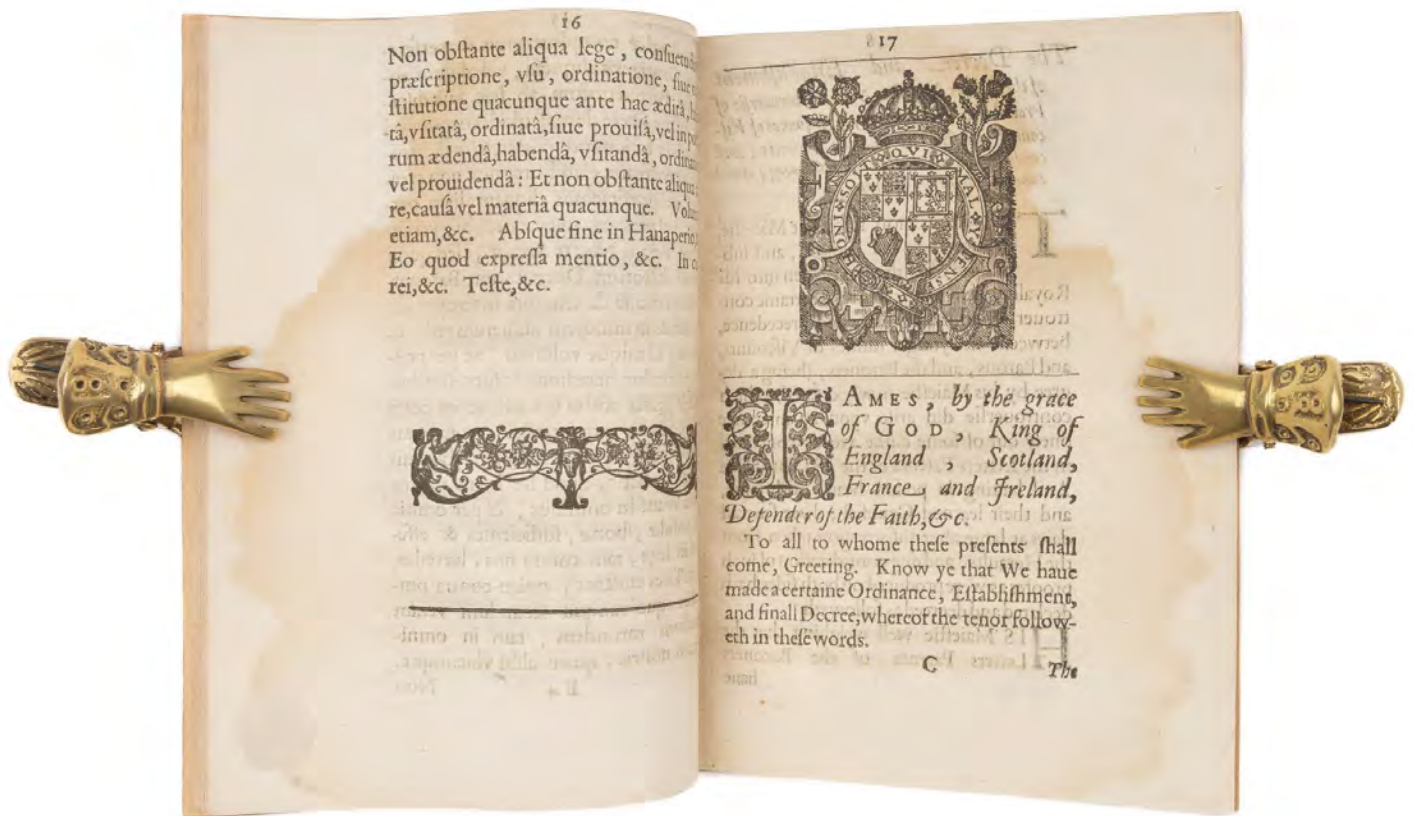 16
Non obſtante aliqua lege, conſuetud
præſcriptione, vſu, ordinatione, ſiue
ſtitutione quacunque ante hac æditâ,
tâ, vſitatâ, ordinatâ, ſiue prouiſâ, vel in
rum ædendâ, habendâ, vſitandâ, ordin
vel prouidendâ: Et non obſtante aliqua
re, cauſâ vel materiâ quacunque.
etiam, &c. Abſque fine in Hanaperio
Eo quod expreſſa mentio, &c. In
rei, &c. Teſte, &c.
17
HONI·SOIT·QVI·MAL·Y·PENSE
IAMES, by the grace
of GOD, King of
England, Scotland,
France, and Ireland,
Defender of the Faith, &c.
To all to whome theſe preſents ſhall
come, Greeting. Know ye that We haue
made a certaine Ordinance, Eſtabliſhment,
and finall Decree, whereof the tenor follow-
eth in theſe words.
C The